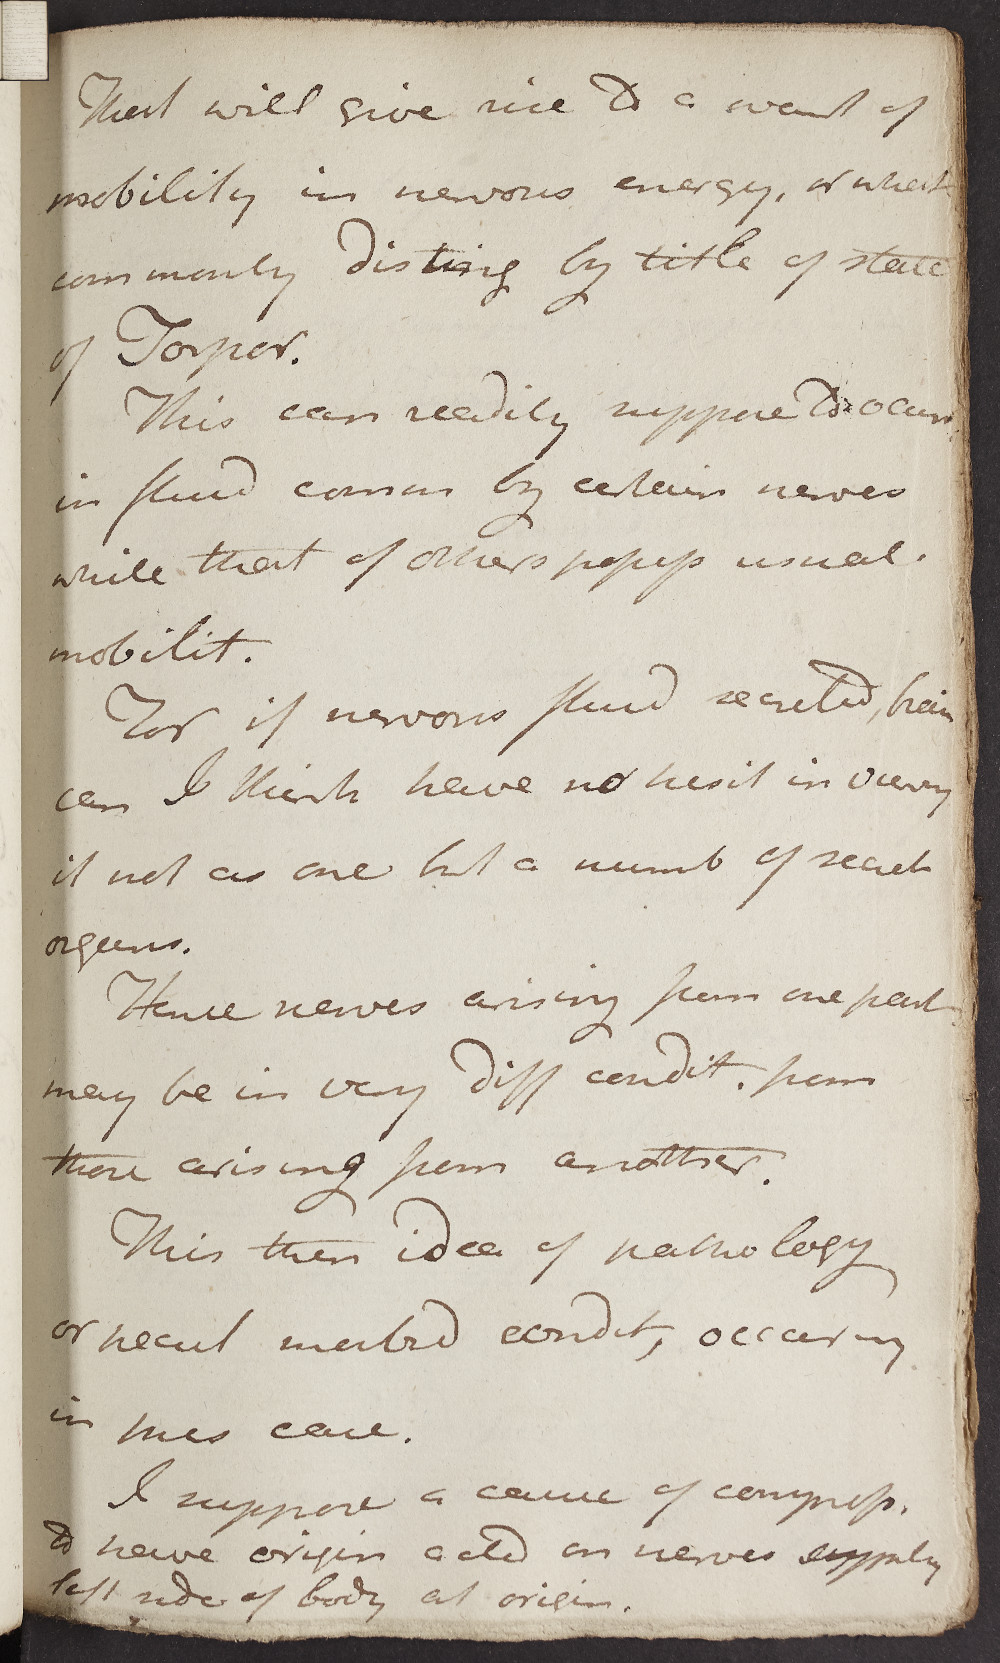 That will give rise to a want of
mobility in nervous energy, or what
commonly disting by title of state
of Torpor.
This can readily suppose to occur
in fluid comm by certain nerves
while that of others possess usual
mobilit.
For if nervous fluid secreted, brain
can I think have no hesit in viewy
it not as one but a numb of secret
organs.
Hence nerves arising from one part
may be in very diff condit. from
those arising from another.
This then idea of pathology
or pecul morbid condit, occuring
in pres case.
I suppose a cause of compress.
to have origin acted on nerves supply
left side of body at origin.